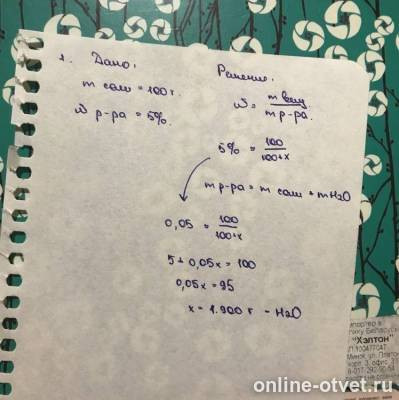 1. Дано:
m соли = 100 г.
ω р-ра = 5%.
Решение:
ω = m вещ. / m р-ра.
5% = 100 / 100+x
m р-ра = m соли + m H2O
0,05 = 100 / 100+x
5 + 0,05x = 100
0,05x = 95
x = 1.900 г - H2O
"Хэлтон"
online-otvet.ru